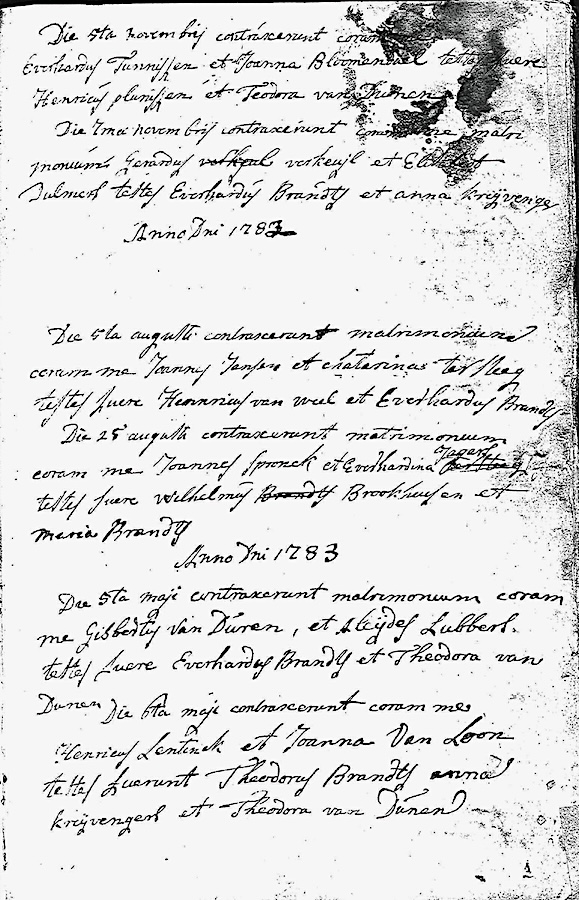 Die 5ta novembrij contraxerunt coram
Everhardus Tunnissen et Joanna Bloemendael testes fuere
Henricus plunissen et Teodora van Dunen
Die 7ma novembris contraxerunt coram me matri
monium Gerardus verkuijl et
Dulmers testes Everhardus Brandts et anna kreijvenger
Anno Dni 1783
Die 5ta augusti contraxerunt matrimonium
coram me Joannes Jansen et chatarina ter steeg
testes fuere Hennricus van wel et Everhardus Brandts
Die 25 augusti contraxerunt matrimonium
coram me Joannes Spronck et Everhardina Jagers
testes fuere wilhelmus Brandts Brookhusen et
maria Brandts
Anno Dni 1783
Die 5ta maji contraxerunt matrimonium coram
me Gisbertus van Düren, et Aleijdes Lubbers.
testes fuere Everhardus Brandts et Theodora van
Dunen Die 6ta maji contraxerunt coram me
Henricus Lentinck et Joanna Van Loon
testes fuerunt Theodorus Brandts anna
kreijvengers et Theodora van Dünen